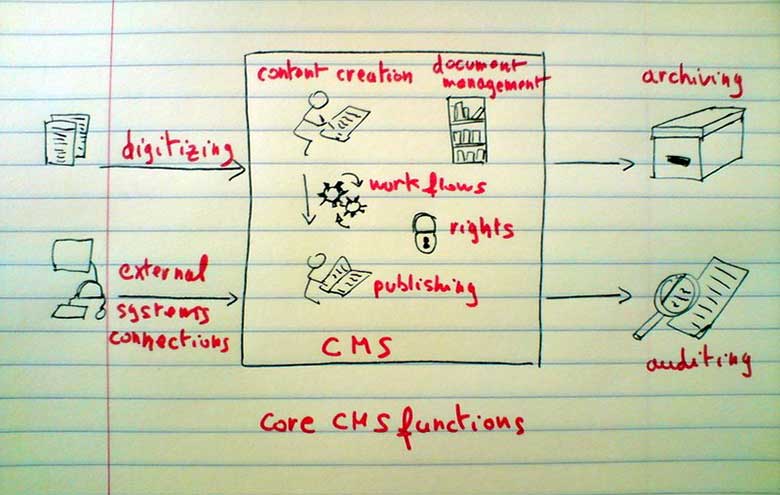 content creation
document
management
archiving
digitizing
workflows
rights
external
systems
connections
publishing
CMS
auditing
core CMS functions